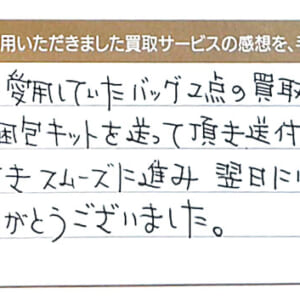 用いただきました買取サービスの感想を、
愛用していたバッグ2点の買取
梱包キットを送って頂き送付
きスムーズに進み 翌日に
がとうございました。